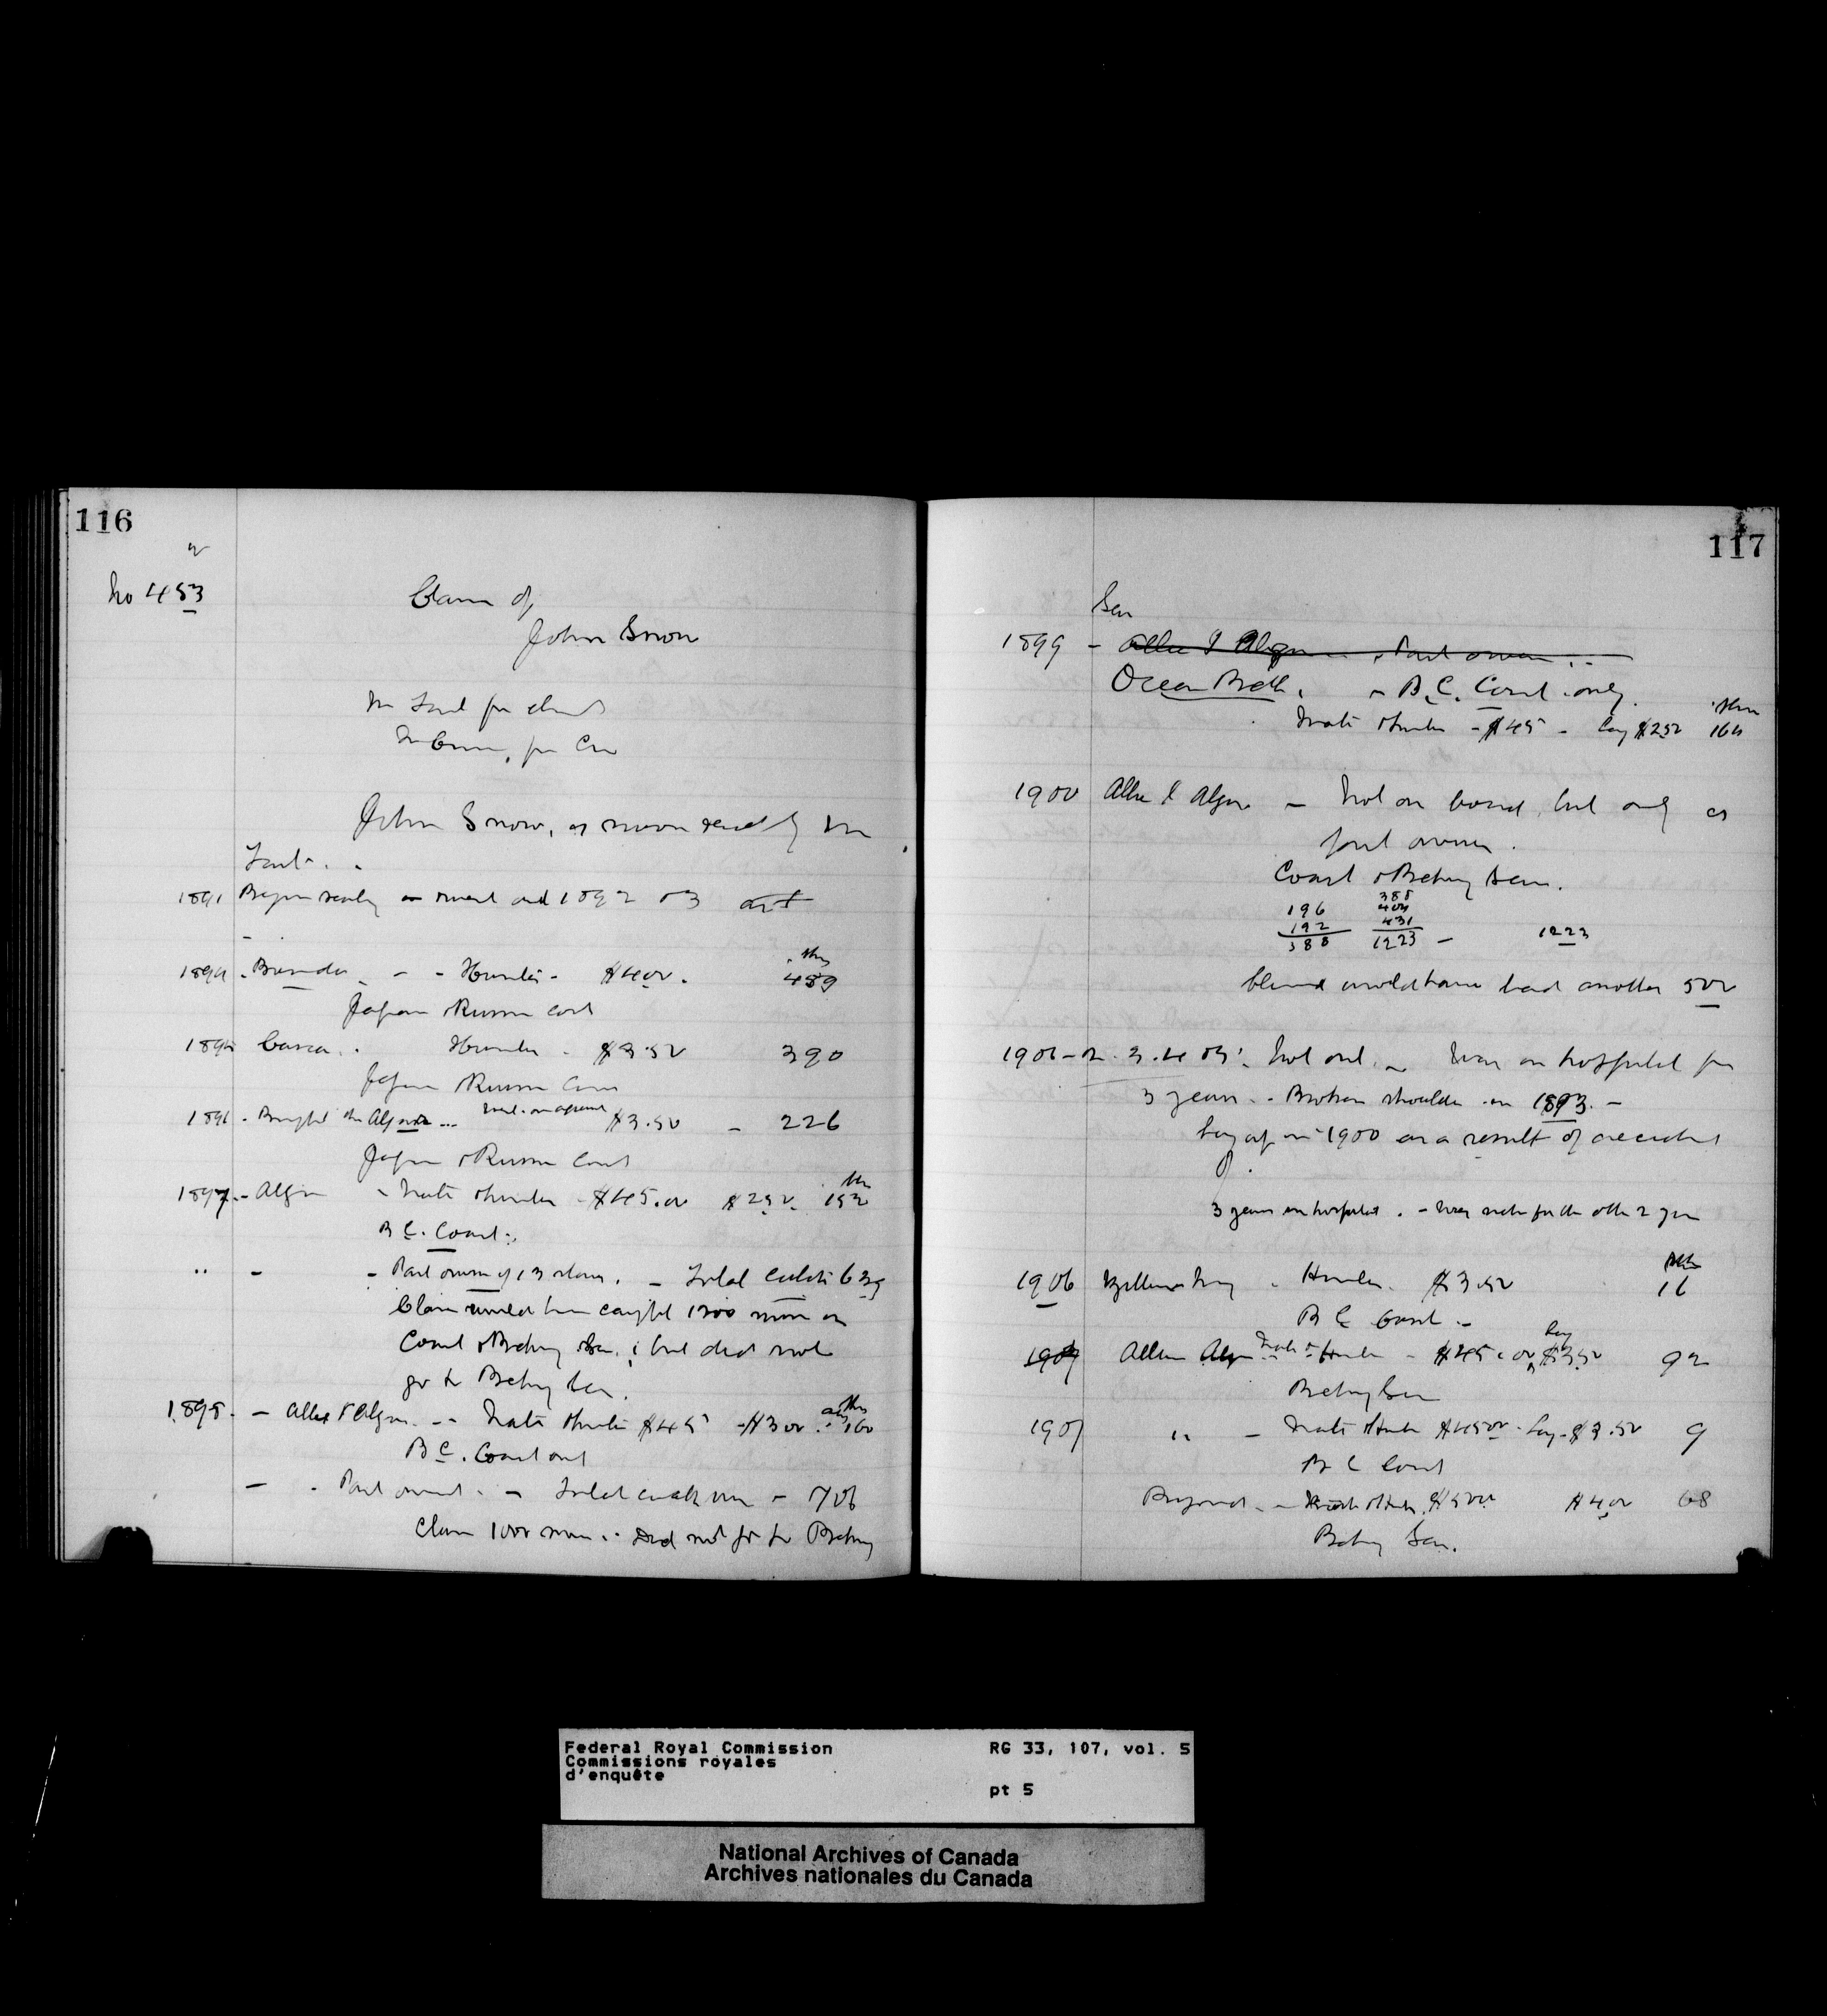 116
No 453
Claim of
John Snow
for claimant
for Crown
John Snow, sworn
1891 Began sealing and 1892 93
skins
1894 - Hunter - $4.00. 459
Japan & Russian coast
1895 Casca. Hunter - $3.50 390
Japan & Russian Coast
1896 - Bought the Algar $3.50 - 226
Japan & Russian Coast
1897 - Algar - Mate & hunter - $45.00 $2.50. 152
B.C. Coast.
" - - Part owner of 13 shares. - Total catch 639
Claims would have caught 1200 more on
Coast & Behring Sea, but did not
go to Behring Sea.
1898. - Allie I Algar. - Mate & hunter $45 - $3.00 160
B.C. Coast only
- Part owner. - Total catch was - 706
Claim 1000 more. Did not go to Behring
117
Sea
1899 - Allie I Algar - Part owner
Ocean Belle. - B.C. Coast only.
skins
Mate & hunter - $45 - Lay $2.50 164
1900 Allie I Algar - Not on board, but only as
part owner.
Coast & Behring Sea.
388
196 404
192 431
388 1223 - 1223
Claims would have had another 500
1901 - 02. 3. 4 05. Not out. - Was in hospital for
3 years. - Broken shoulder in 1893. -
Lay up in 1900 as a result of accident
3 years in hospital. - for the other 2 years
skins
1906 - Hunter. $3.50 16
B C Coast -
1907 Allie Algar Mate & Hunter - $45.00 Lay $3.50 92
Behring Sea
1907 " - Mate & Hunter $45.00 - Lay - $3.50 9
B C Coast
- Mate & Hunter $50.00 $4.00 68
Behring Sea.
Federal Royal Commission
Commissions royales
d'enquête
RG 33, 107, vol. 5
pt 5
National Archives of Canada
Archives nationales du Canada